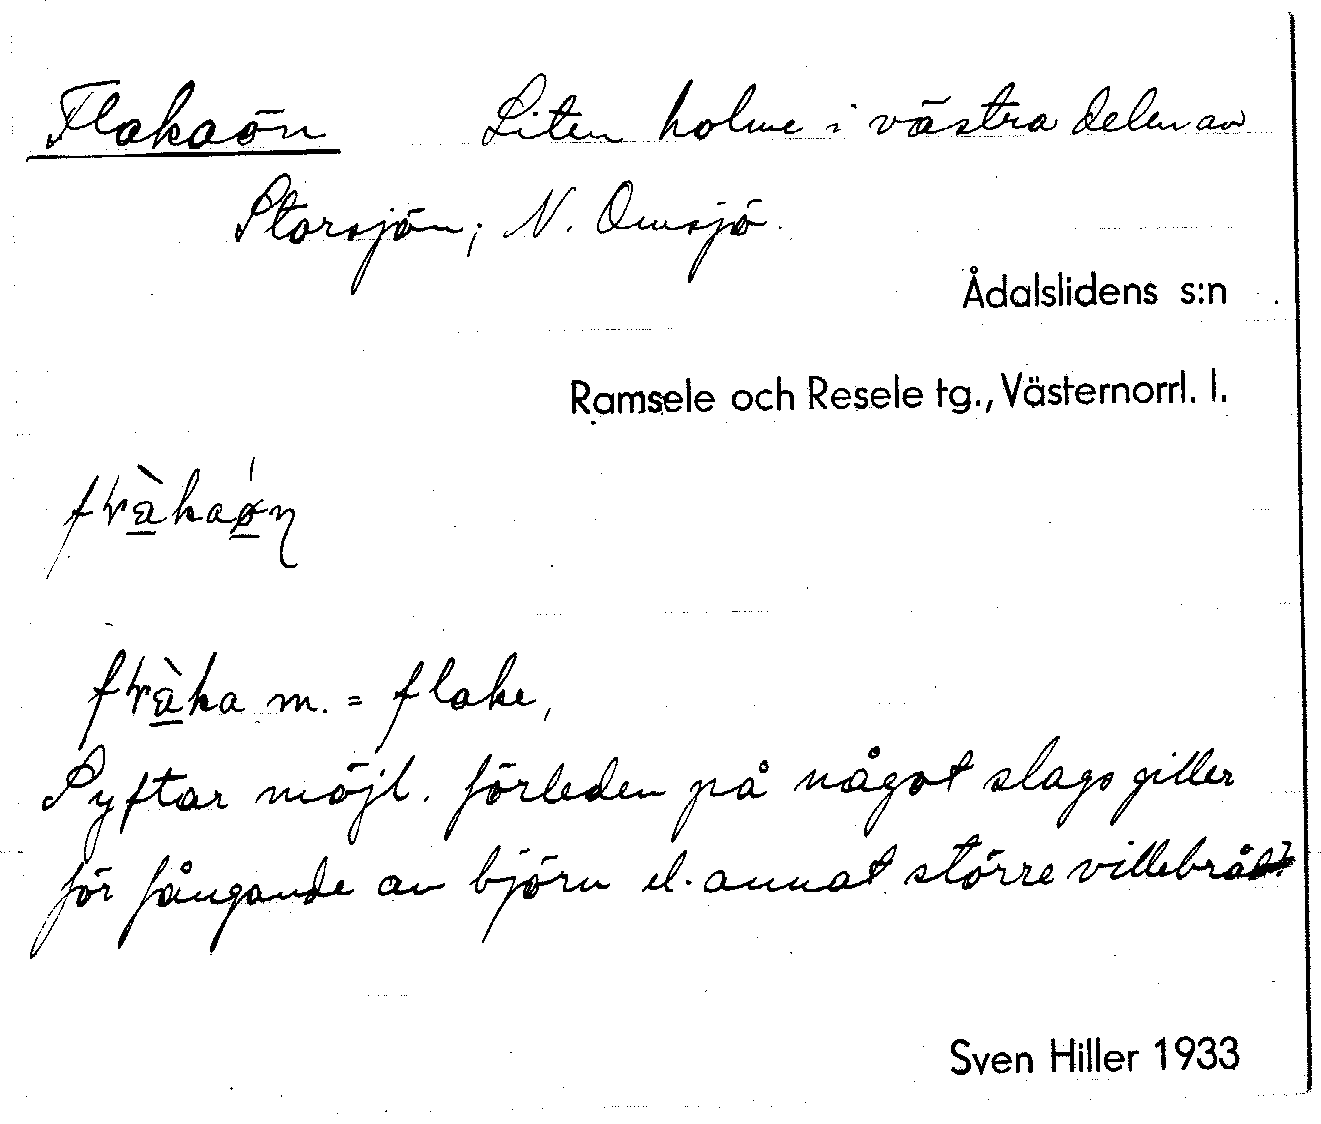 Flakaön Liten holme i västra delen av
Storsjön; N. Omsjö.
Ådalslidens s:n
Ramsele och Resele tg., Västernorrl. l.
fɽàkaǿn
fɽàka m. = flake,
Syftar möjl. förleden på något slags giller
för fångande av björn el. annat större villebråd?
Sven Hiller 1933